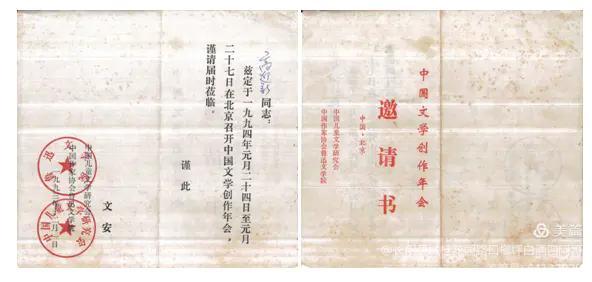 同志：
兹定于一九九四年元月二十四日至元月
二十七日在北京召开中国文学创作年会，
谨请届时莅临。
谨此
文安
中国儿童文学研究会
中国作家协会鲁迅文学院
中国文学创作年会
邀请书
中国·北京
中国儿童文学研究会
中国作家协会鲁迅文学院
美篇